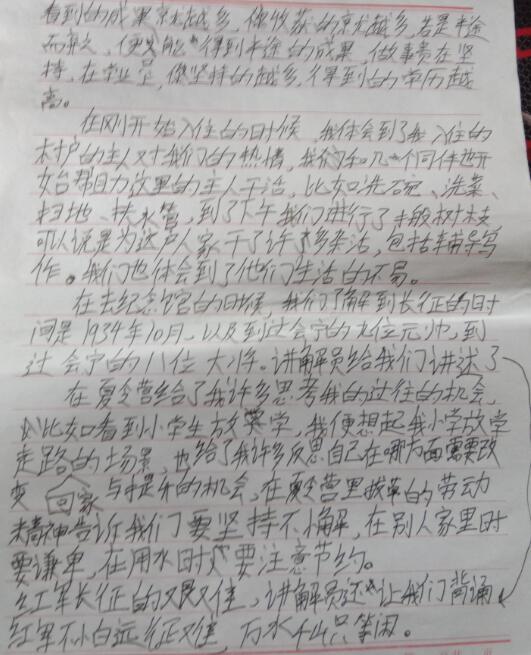 看到的成果就越多，你收获的就越多，若是半途
而弃，便只能得到半途的成果，做事贵在坚
持，在学业里，你坚持的越多，得到的学历越
高。
在刚开始入住的时候，我体会到了我入住的
户的主人对我们的热情，我们和几个同伴也开
始帮助力这里的主人干活，比如洗碗、洗菜、
扫地、扶水管，到了下午我们进行了搬树枝
可以说是为这户人家干了许多杂活，包括辅导写
作。我们也体会到了他们生活的不易。
在去纪念馆的时候，我们了解到长征的时
间是1934年10月，以及到过会宁的九位元帅，到
过会宁的八位大将。讲解员给我们讲述了
在夏令营给了我许多思考我的过往的机会，
比如看到小学生放学，我便想起我小学放学
走路的场景，也给了我许多反思自己在哪方面需要改
变 回家 与提升的机会，在夏令营里拔草的劳动
精神告诉我们要坚持不懈，在别人家里时
要谦卑，在用水时要注意节约。
红军长征的艰难，讲解员还让我们背诵
红军不怕远征难，万水千山只等闲。